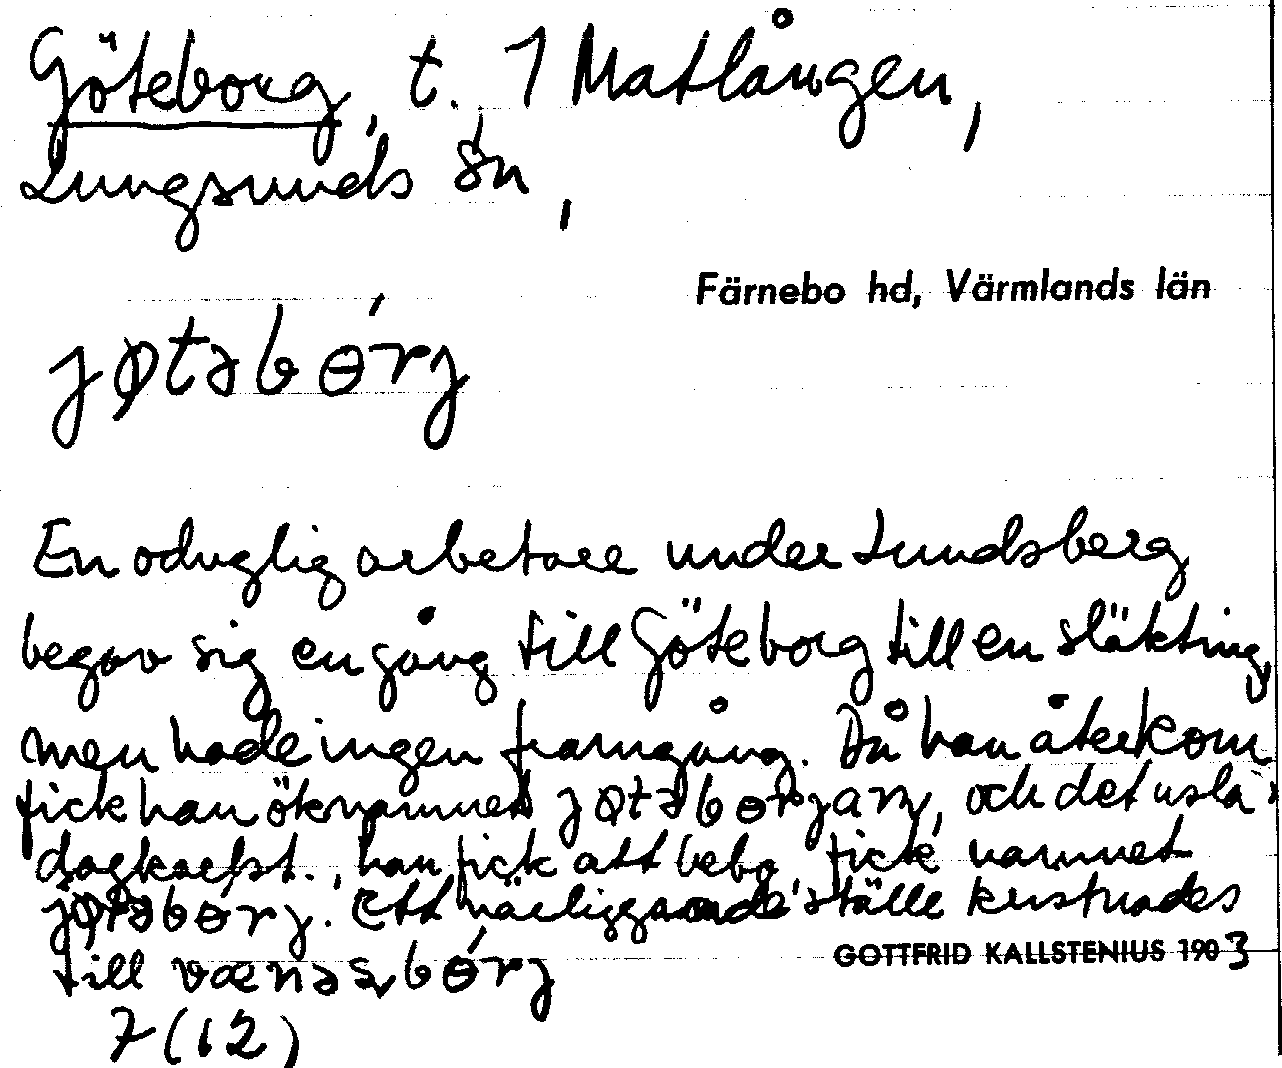 Göteborg, t. 1 Matlången,
Lungsunds sn,
Färnebo hd, Värmlands län
jøtəbɵ́rj
En oduglig arbetare under Lundsberg
begav sig en gång till Göteborg till en släkting,
men hade ingen framgång. Då han återkom
fick han öknamnet jøtəbɵrjarn, och det usla
dagkarlst., han fick att bebo, fick namnet
jøtəbɵ́rj. Ett närliggande ställe kristnades
till vænəsbɵ́rj
GOTTFRID KALLSTENIUS 1903
7 (12)